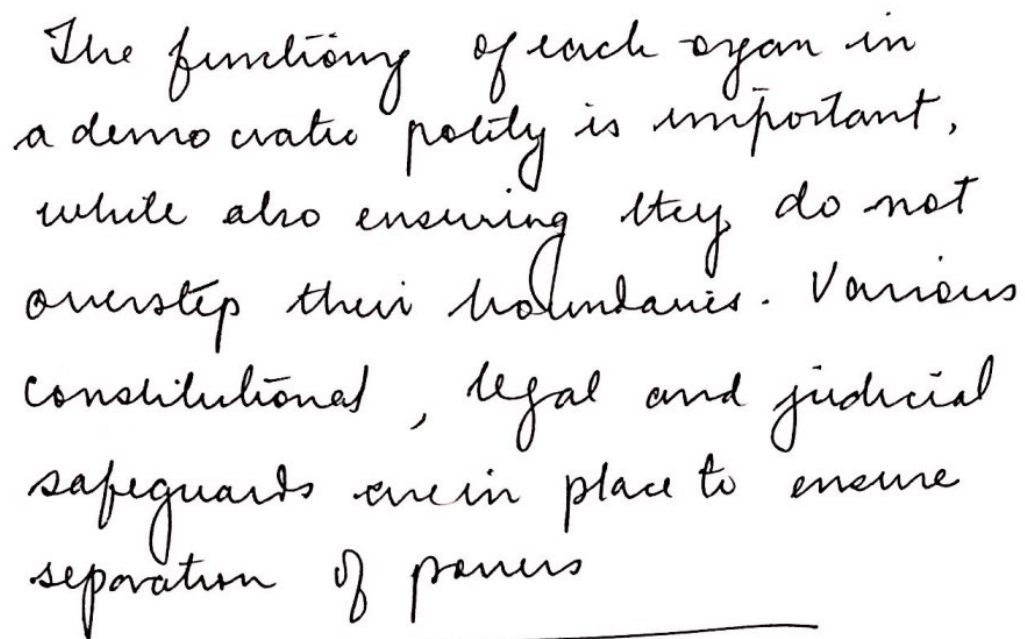 The functiong of each organ in
a democratic polity is important,
while also ensuring they do not
overstep their boundaries. Various
constitutional, legal and judicial
safeguards are in place to ensure
separation of powers